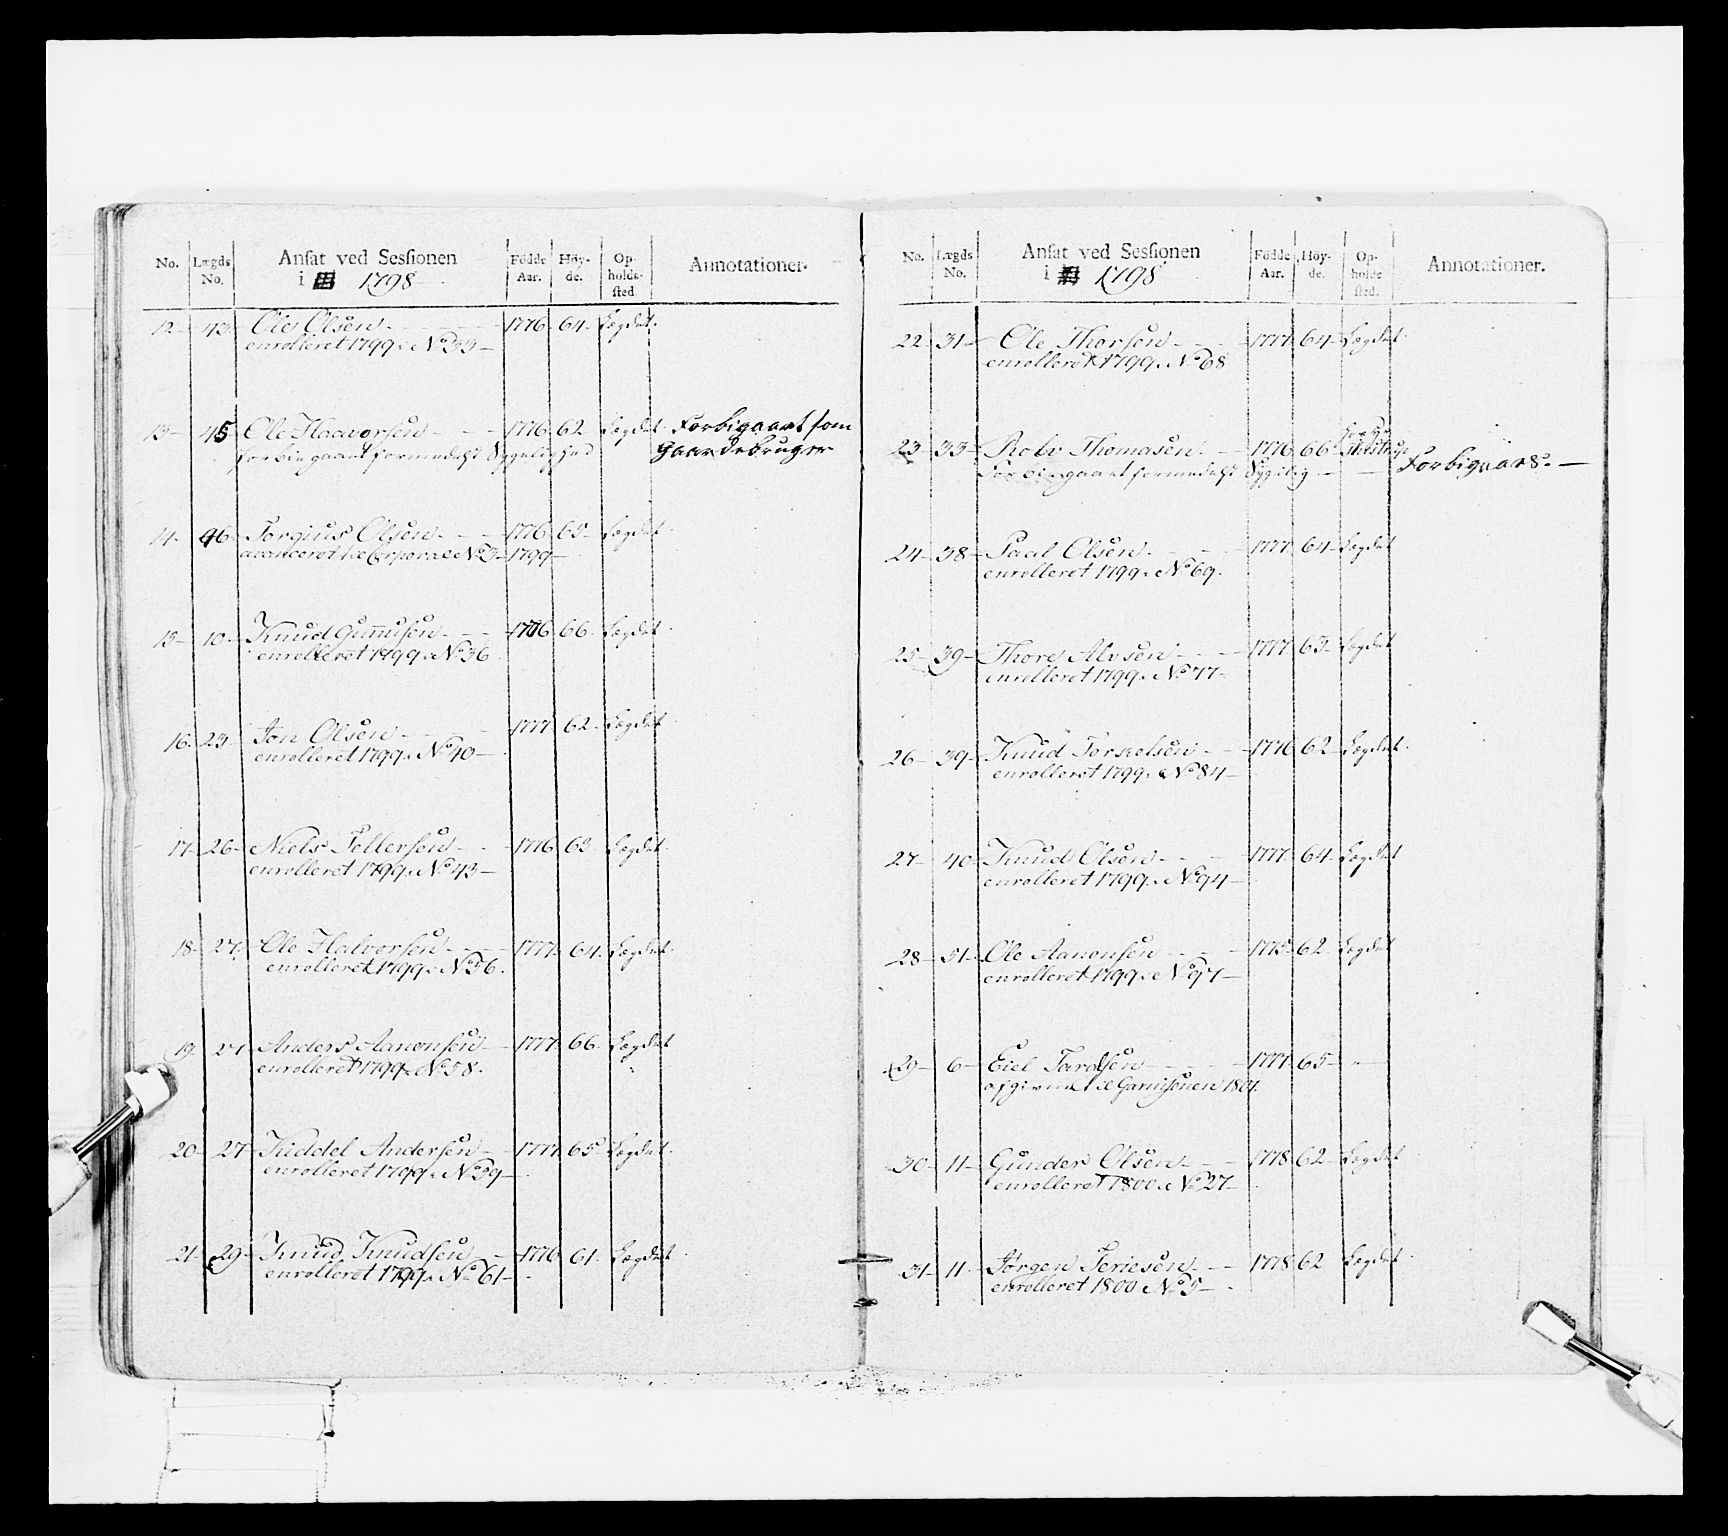 No. Lægds No. Ansat ved Sessionen i 1798 Födde Aar. Höyde. Opholdssted Annotationer.
12 43 Ole Olsen 1776 64 Lægdet
enrolleret 1799 No 33
13 45 Ole Haavorsen 1776 62 Lægdet Forbigaaet som
forbiegaaet formedelst Sygelighed Gaardebruger
14 46 Torgius Olsen 1776 65 Lægdet
avanceret Corporal No 3 1799
15 10 Knud Gunnusen 1776 66 Lægdet
enrolleret 1799 No 36
16 23 Jon Olsen 1777 62 Lægdet
enrolleret 1799 No 40
17 26 Niels Tellersen 1776 63 Lægdet
enrolleret 1799 No 43
18 27 Ole Halvorsen 1777 64 Lægdet
enrolleret 1799 No 56
19 27 Anders Aanonsen 1777 66 Lægdet
enrolleret 1799 No 58
20 27 Kiddel Andersen 1777 65 Lægdet
enrolleret 1799 No 59
21 29 Knud Knudsen 1776 61 Lægdet
enrolleret 1799 No 61
No. Lægds No. Ansat ved Sessionen i 1798 Födde Aar. Höyde. Opholds sted. Annotationer.
22 31 Ole Thorsen 1777 64 Lægdet
enrolleret 1799 No 68
23 33 Rolv Thomasen 1776 66 Forbigaaes
Forbiegaaet formedelst Sygelig
24 38 Paal Olsen 1777 64 Lægdet
enrolleret 1799 No 69
25 39 Thore Alvsen 1777 63 Lægdet
enrolleret 1799 No 77
26 39 Knud Torkelsen 1776 62 Lægdet
enrolleret 1799 No 84
27 40 Knud Olsen 1777 64 Lægdet
enrolleret 1799 No 94
28 51 Ole Aanonsen 1775 62 Lægdet
enrolleret 1799 No 97
29 6 Eiel Taralsen 1777 65
afgivne Garnisonen 1801
30 11 Gunder Olsen 1778 62 Lægdet
enrolleret 1800 No 27
31 11 Jørgen Teriesen 1778 62 Lægdet
enrolleret 1800 No 5